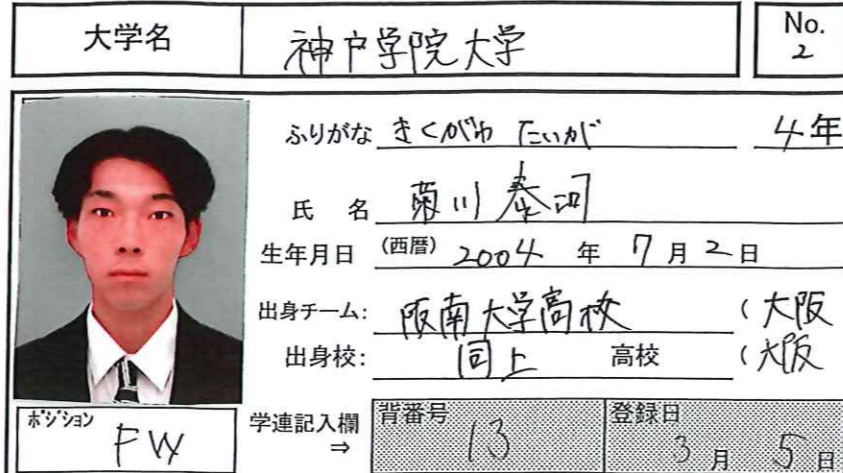 大学名 神戸学院大学 No. 2
ふりがな きくがわ たいが 4年
氏 名 菊川 泰河
生年月日 (西暦) 2004 年 7 月 2 日
出身チーム: 阪南大学高校 (大阪
出身校: 同上 高校 (大阪
ポジション FW 学連記入欄 ⇒ 背番号 13 登録日 3 月 5 日